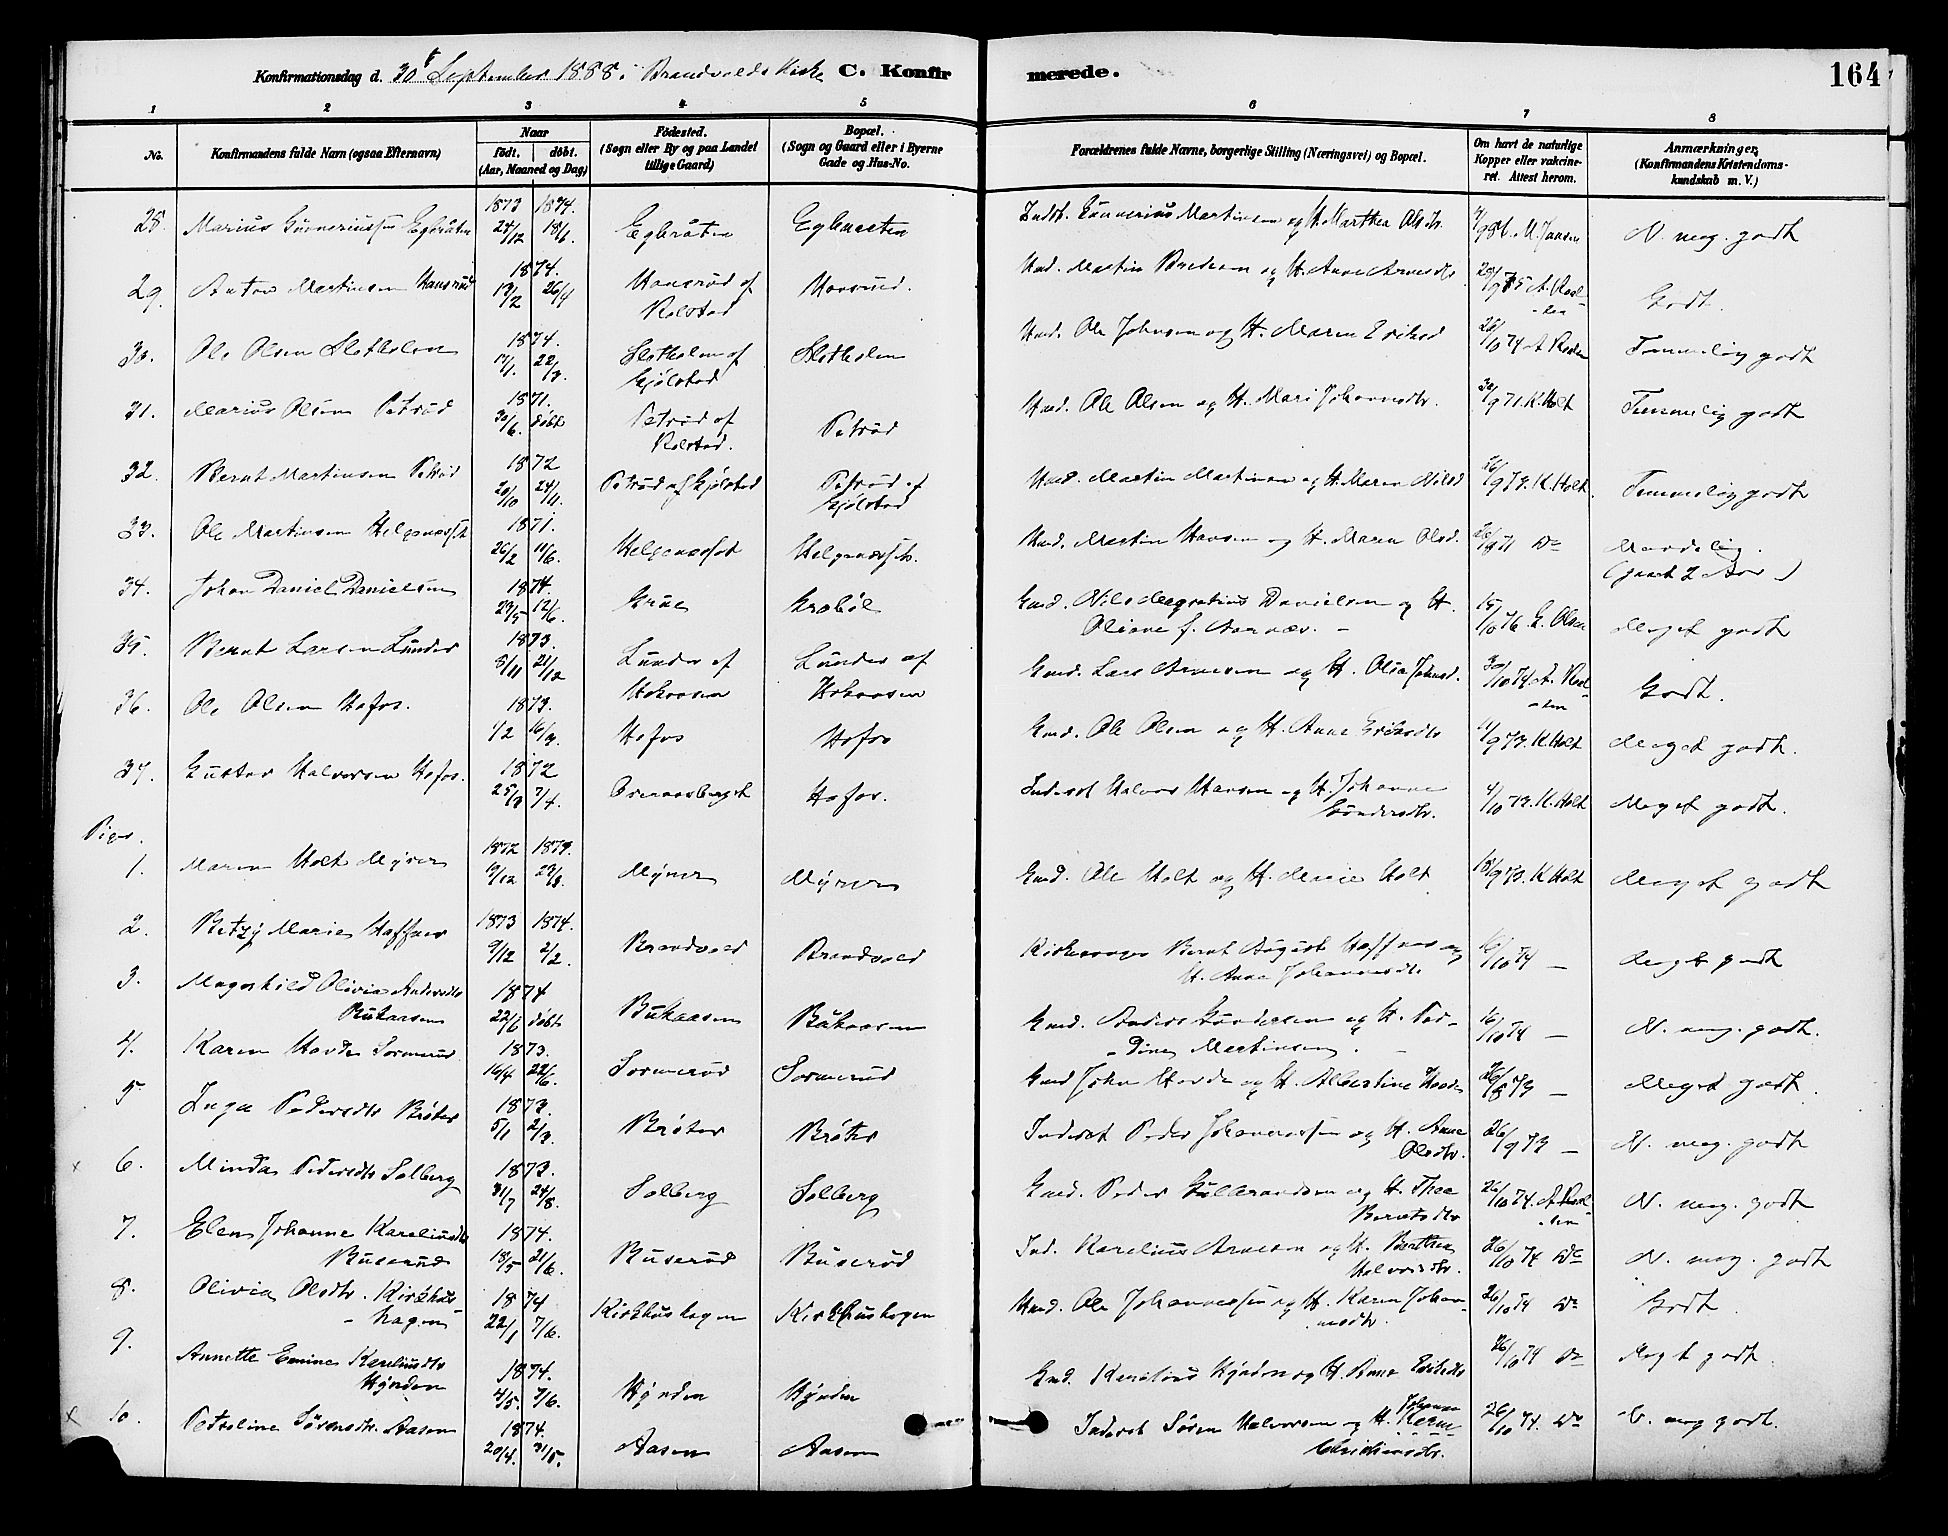 164
Konfirmationsdag d. 30t September 1888 i Brandvolds Kirke C. Konfir merede.
1 2 3 4 5 6 7 8
No. Konfirmandens fulde Navn (ogsaa Efternavn) Naar født, døbt. (Aar, Maaned og Dag) Fødested. (Sogn eller By og paa Landet tillige Gaard) Bopæl. (Sogn og Gaard eller i Byerne Gade og Hus-No. Forældrenes fulde Navne, borgerlige Stilling (Næringsvei) og Bopæl. Om havt de naturlige Kopper eller vakcineret. Attest herom. Anmærkninger, (Konfirmandens Kristendomskundskab m. V.)
28. Marius Gunneriussen 1873 24/12 1874. 18/1. Inds. Gunnerius Martinsen og H. Marthea Olsdtr. N. meg. godt
29. Anton Martinsen Hansrud 1874. 13/2 26/4 Hansrud af Rolstad Hansrud. Martin og H. Anne Arnesdtr Godt.
30. Ole Olsen Slotholen 1874. 17/1. 22/3. Slotholen af Gjølstad Slotholen Ole Johnsen og H. Maren Eriksd 26/10 74 Temmelig godt
31. Marius Olsen Petrud 1871. 30/6. døbt Petrud af Rolstad. Petrud Ole Olsen og H. Mari Johannesdtr. 30/9 71. K. Holt Temmelig godt
32. Bernt Martinsen Petrud 1872 20/10 24/11. Petrud af Gjølstad Petrud af Gjølstad Martin Martinsen og H. Maren Nilsd 26/9 73. K. Holt. Temmelig godt
33. Ole Martinsen Helgenæsset 1871. 26/2 11/6. Helgenæsset Helgenæsset. Martin Hansen og H. Maren Olsd. 26/9 71 Do Maadelig. (gaaet 2 Aar)
34. Johan Daniel Danielsen 1874. 23/5 12/6. Grue Grobøl Gmd. Nils Danielsen og H. Oliane f. Aarnæs. 15/10 76 G. Olsen Meget godt
35. Bernt Larsen Lunder 1873. 8/11 21/12 Lunder af Hokaasen Lunder af Hokaasen Gmd. Lars Arnesen og H. Olia Johnsd. 30/10 74 Godt.
36. Ole Olsen Hofos. 1873. 1/2 16/3. Hofos Hofos Gmd. Ole Olsen og H. Anne Eriksdtr 11/9 73. K. Holt Meget godt.
37. Gustav Halvorsen Hofos. 1872 25/3 7/4. Overaasberget Hofos. Inderst Halvor Hansen og H. Johanne Gundersdtr. 4/10 73. K. Holt Meget godt.
Piger.
1. Maren Holt Myren 1872 19/12 1873. 23/3. Myren Myren Gmd. Ole Holt og H. Marie Holt 18/9 73. K Holt Meget godt
2. Betzy Marie Haffner 1873 9/12 1874. 2/2. Brandvold Brandvold Kirkesanger Bernt August Haffner og H. Anne Johannesdtr 16/10 74 — Meget godt
3. Magnhild Olivia Andersdtr Bukaasen 1874 22/6 døbt Bukaasen Bukaasen Gmd. Anders Gundersen og H. Martinsen. 16/10 74 — N. meg. godt.
4. Karen Hovde Sormerud 1873. 16/4 22/6. Sormerud Sormerud Gmd John Hovde og H. Albertine Hovde 26/8 73 — Meget godt.
5 Inga Pedersdtr Brøter 1873. 5/1 2/3. Brøter Brøter Inderst Peder Johannessen og H. Anne Olsdtr. 26/9 73 — N. meg. godt
x 6. Minda Pedersdtr Solberg 1873. 31/7 24/8. Solberg Solberg Gmd. Peder Gulbrandsen og H. Thea Berntsdtr 26/10 74. N. meg. godt
7. Elen Johanne Kareliusdtr Buserud 1874. 18/5 21/6. Buserud Buserud Ind. Karelius Arnesen og H. Berthea Halvorsdtr. 26/10 74 Do N. meg. godt
8. Olivia Olsdtr. Kirkhushagen 1874 22/1 7/6. Kirkhushagen Kirkhushagen Ole Johannessen og H. Karen Johannesdtr. 26/10 74 Do Godt.
9. Annette Emine Kareliusdtr Hynden 1874. 4/5. 7/6. Hynden Hynden Gmd. Karelius Hynden og H. Anne Eriksdtr 26/10 74 Do Meget godt.
x 10. Petroline Sørensdtr. Aasen 1874. 20/4. 31/5. Aasen Aasen Inderst Søren Halvorsen og H. Johanne Karine Christiansdtr. 26/10 74. Do N. meg godt.